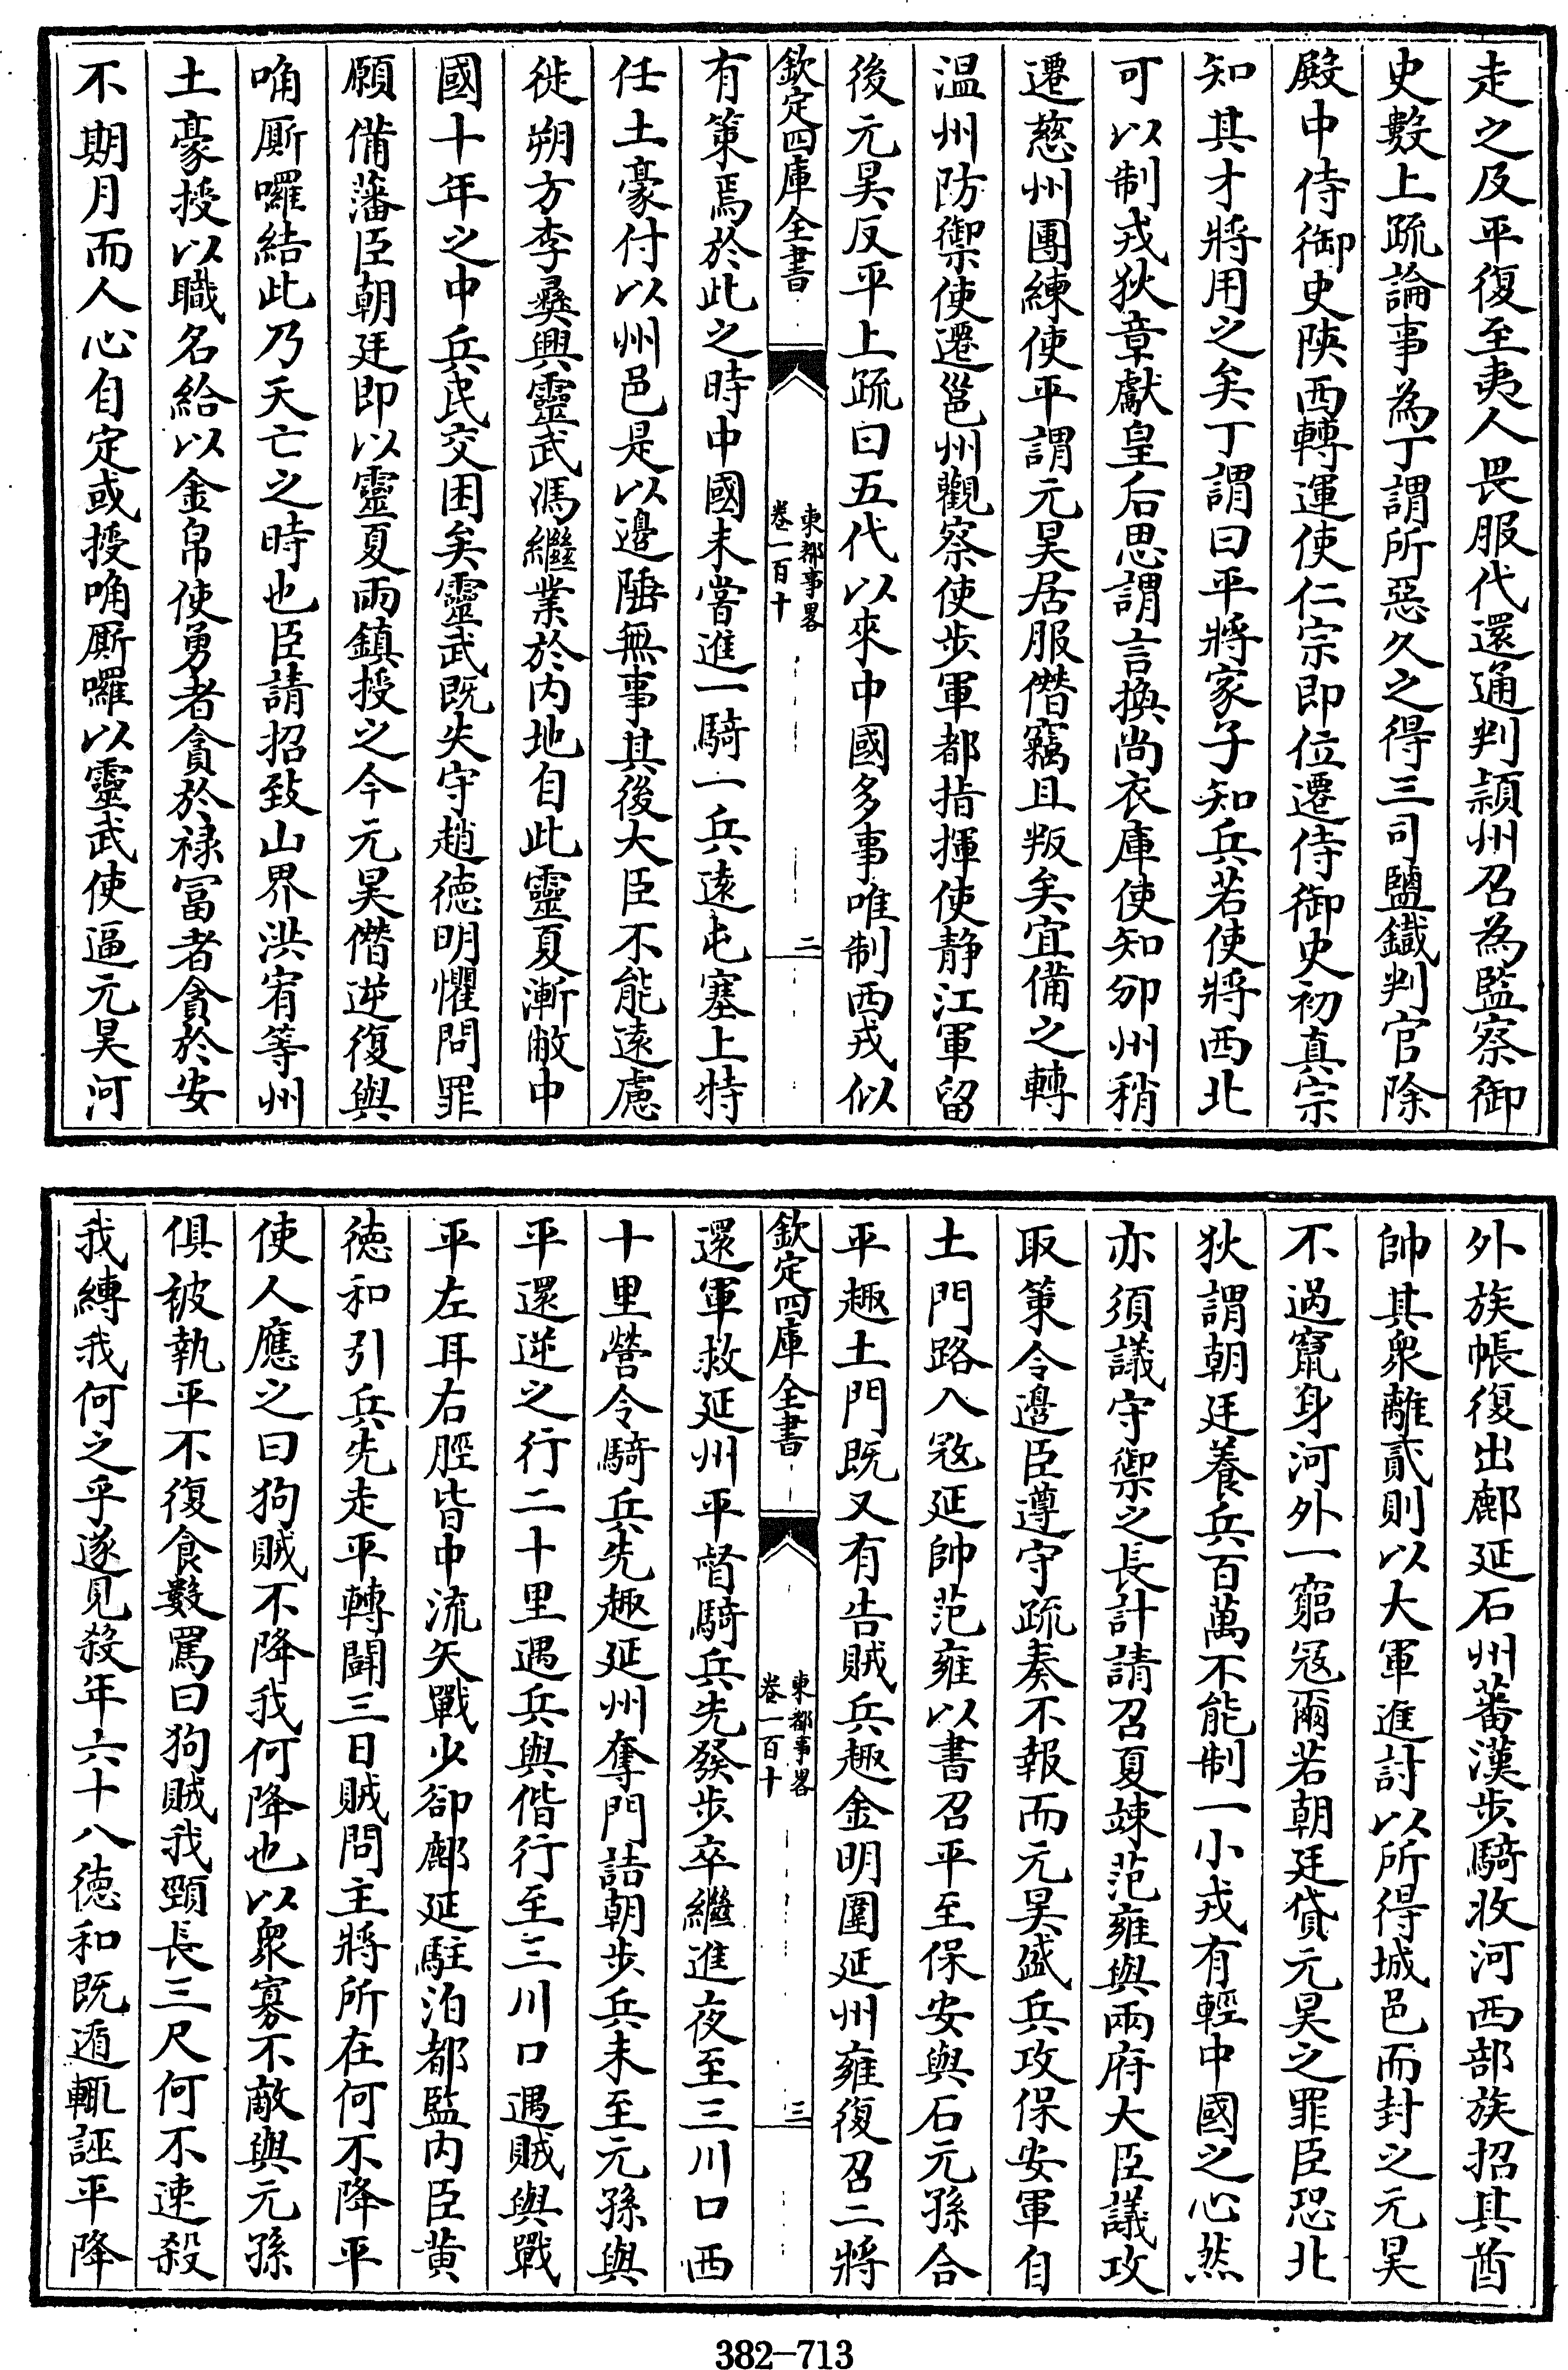 走之及平復至夷人畏服代還通判潁州召為監察御
史數上疏論事為丁謂所惡久之得三司鹽鐵判官除
殿中侍御史陜西轉運使仁宗即位遷侍御史初真宗
知其才將用之矣丁謂曰平將家子知兵若使將西北
可以制戎狄章獻皇后思謂言換尚衣庫使知邠州稍
遷慈州團練使平謂元昊居服僭竊且叛矣宜備之轉
温州防禦使遷邕州觀察使步軍都指揮使静江軍留
後元昊反平上疏曰五代以來中國多事唯制西戎似
欽定四庫全書
東都事畧
卷一百十
二
有策焉於此之時中國未嘗進一騎一兵逺屯塞上特
任土豪付以州邑是以邊陲無事其後大臣不能逺慮
徙朔方李彞興靈武馮繼業於内地自此靈夏漸敝中
國十年之中兵民交困矣靈武既失守趙徳明懼問罪
願備藩臣朝廷即以靈夏兩鎮授之今元昊僭逆復與
唃厮囉結此乃天亡之時也臣請招致山界洪宥等州
土豪授以職名給以金帛使勇者貪於祿冨者貪於安
不期月而人心自定或授唃厮囉以靈武使逼元昊河
外族帳復出鄜延石州蕃漢步騎收河西部族招其酋
帥其衆離貳則以大軍進討以所得城邑而封之元昊
不過竄身河外一窮冦爾若朝廷貸元昊之罪臣恐北
狄謂朝廷養兵百萬不能制一小戎有輕中國之心然
亦須議守禦之長計請召夏竦范雍與兩府大臣議攻
取策令邊臣遵守疏奏不報而元昊盛兵攻保安軍自
土門路入冦延帥范雍以書召平至保安與石元孫合
平趣土門既又有告賊兵趣金明圍延州雍復召二將
欽定四庫全書
東都事畧
卷一百十
三
還軍救延州平督騎兵先發步卒繼進夜至三川口西
十里營令騎兵先趣延州奪門詰朝步兵未至元孫與
平還逆之行二十里遇兵與偕行至三川口遇賊與戰
平左耳右脛皆中流矢戰少卻鄜延駐泊都監内臣黄
徳和引兵先走平轉鬭三日賊問主將所在何不降平
使人應之曰狗賊不降我何降也以衆寡不敵與元孫
俱被執平不復食數罵曰狗賊我頸長三尺何不速殺
我縛我何之乎遂見殺年六十八徳和既遁輒誣平降
382-713